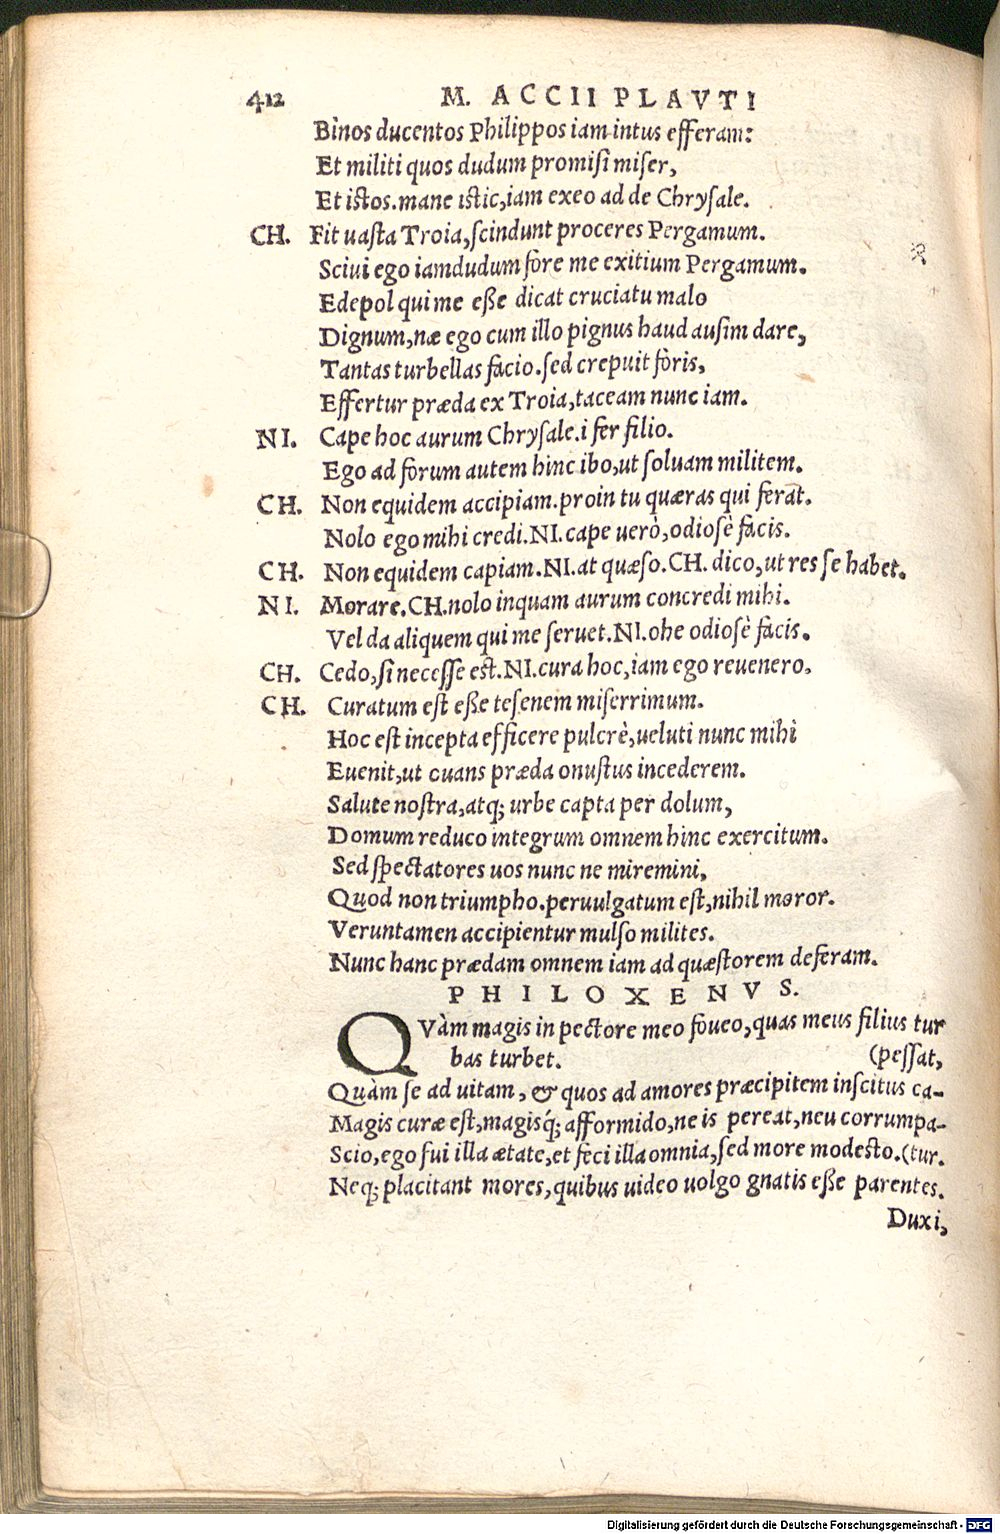 412 M. ACCII PLAVTI
Bìnos ducentos Philippos iam intus efferam:
Et militi quos dudum promisi miser,
Et istos. mane istic, iam exeo ad de Chrysale.
CH. Fit uasta Troia, scindunt proceres Pergamum.
Sciui ego iamdudum fore me exitium Pergamum.
Edepol qui me eße dicat cruciatu malo
Dignum, næ ego cum illo pignus haud ausim dare,
Tantas turbellas facio. sed crepuit foris,
Effertur præda ex Troia, taceam nunc iam.
NI. Cape hoc aurum Chrysale. i fer filio.
Ego ad forum autem hinc ibo, ut soluam militem.
CH. Non equidem accipiam. proin tu quæras qui ferat.
Nolo ego mihi credi. NI. cape uerò, odiosè facis.
CH. Non equidem capiam. NI. at quæso. CH. dico, ut res se habet.
NI. Morare. CH. nolo inquam aurum concredi mihi.
Vel da aliquem qui me seruet. NI. ohe odiosè facis.
CH. Cedo, si necesse est. NI. cura hoc, iam ego reuenero.
CH. Curatum est eße te senem miserrimum.
Hoc est incepta efficere pulcrè, ueluti nunc mihi
Euenit, ut ouans præda onustus incederem.
Salute nostra, atq; urbe capta per dolum,
Domum reduco integrum omnem hinc exercitum.
Sed spectatores uos nunc ne miremini,
Quod non triumpho. peruulgatum est, nihil moror.
Veruntamen accipientur mulso milites.
Nunc hanc prædam omnem iam ad quæstorem deferam.
PHILOXENVS.
QVàm magis in pectore meo foueo, quas meus filius tur
bas turbet. (pessat,
Quàm se ad uitam, & quos ad amores præcipitem inscitus ca-
Magis curæ est, magisq́; afformido, ne is pereat, neu corrumpa-
Scio, ego fui illa ætate, et feci illa omnia, sed more modesto. (tur.
Neq; placitant mores, quibus uideo uolgo gnatis eße parentes.
Duxi,
Digitalisierung gefördert durch die Deutsche Forschungsgemeinschaft - DFG